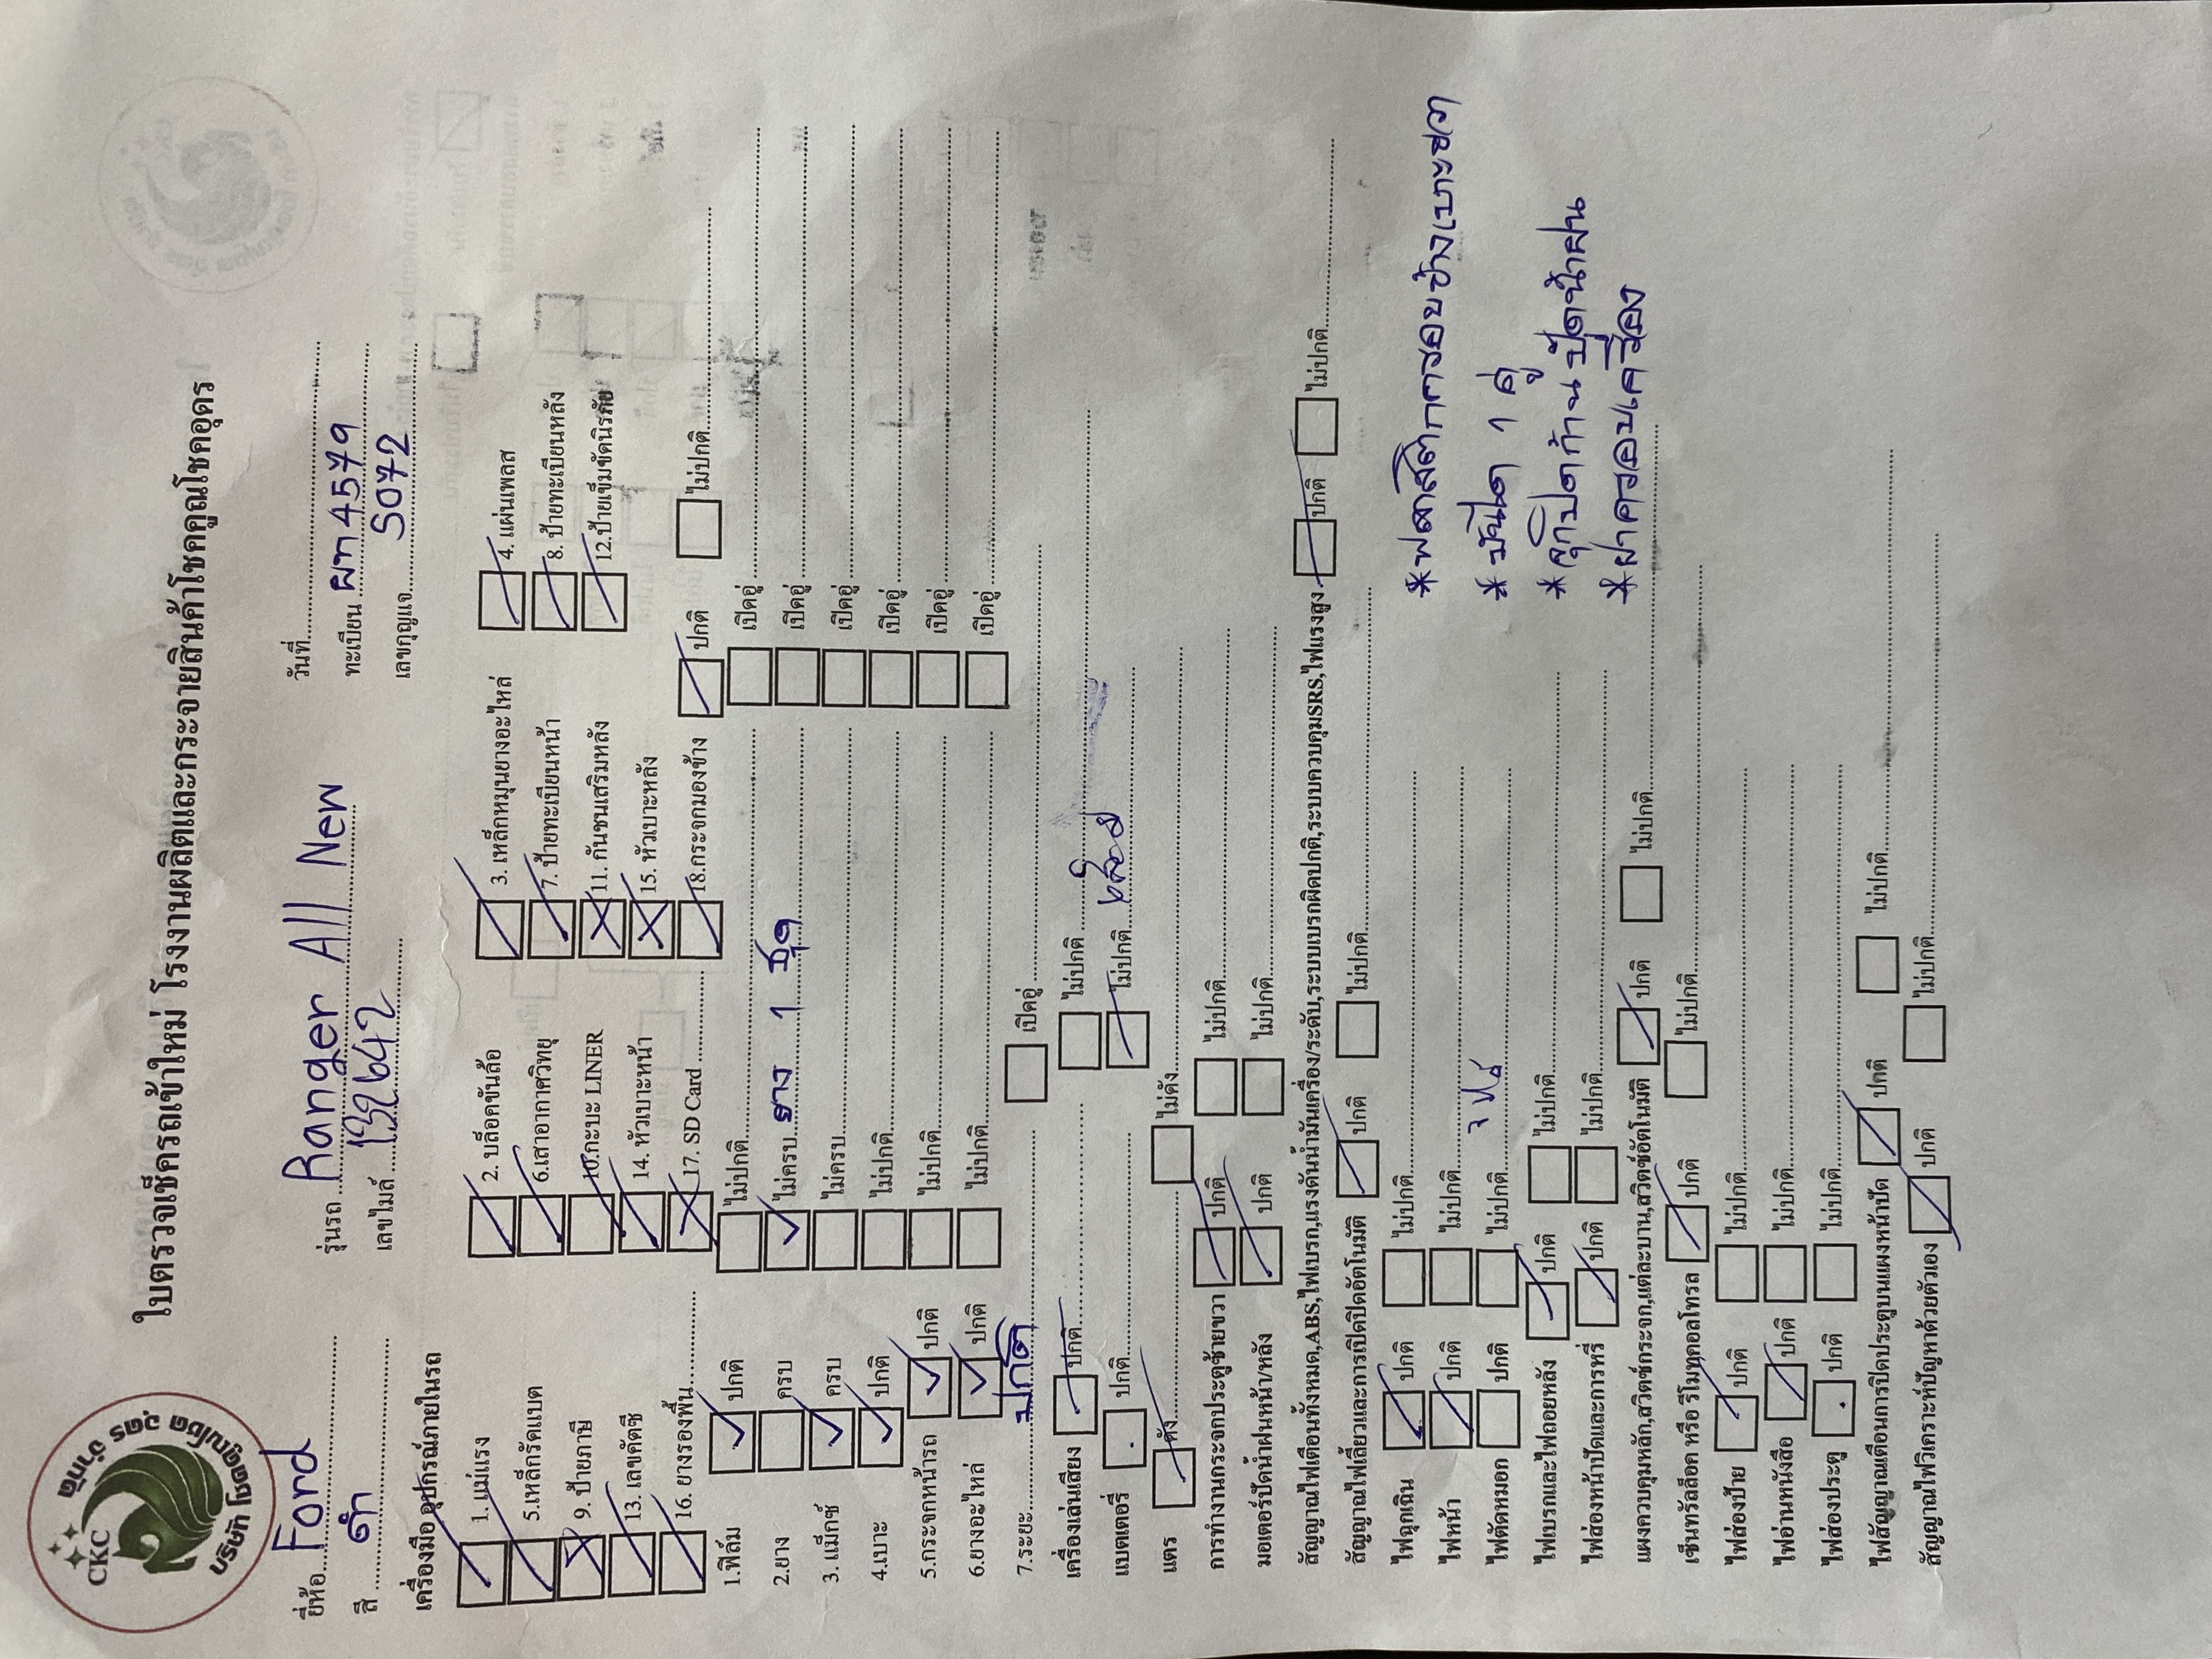 บริษัท โชคคูณโชค อุดร จำกัด
CKC
ใบตรวจเช็ครถเข้าใหม่ โรงงานผลิตและกระจายสินค้าโชคคูณโชคอุดร
ยี่ห้อ Ford รุ่นรถ Ranger All New วันที่
สี ดำ เลขไมล์ 132642 ทะเบียน ผท 4579
เลขกุญแจ 5072
เครื่องมือ อุปกรณ์ภายในรถ
1. แม่แรง 2. บล็อคขันล้อ 3. เหล็กหมุนยางอะไหล่ 4. แผ่นเพลส
5.เหล็กรัคแบต 6.เสาอากาศวิทยุ 7. ป้ายทะเบียนหน้า 8. ป้ายทะเบียนหลัง
9. ป้ายภาษี 10.กะบะ LINER 11. กันชนเสริมหลัง 12.ป้ายเข็มขัดนิรภัย
13. เลขคัตซี 14. หัวเบาะหน้า 15. หัวเบาะหลัง
16. ยางรองพื้น 17. SD Card 18.กระจกมองข้าง ปกติ ไม่ปกติ
1.ฟิล์ม ปกติ ไม่ปกติ เปิดอู่
2.ยาง ครบ ไม่ครบ ยาง 1 ชุด เปิดอู่
3. แม็กซ์ ครบ ไม่ครบ เปิดอู่
4.เบาะ ปกติ ไม่ปกติ เปิดอู่
5.กระจกหน้ารถ ปกติ ไม่ปกติ เปิดอู่
6.ยางอะไหล่ ปกติ ไม่ปกติ เปิดอู่
7.ระยะ ปกติ เปิดอู่
เครื่องเล่นเสียง ปกติ ไม่ปกติ
แบตเตอรี่ ปกติ ไม่ปกติ
แตร ดัง ไม่ดัง
การทำงานกระจกประตูซ้ายขวา ปกติ ไม่ปกติ
มอเตอร์ปัดน้ำฝนหน้า/หลัง ปกติ ไม่ปกติ
สัญญาณไฟเตือนทั้งหมด,ABS,ไฟเบรก,แรงดันน้ำมันเครื่อง/ระดับ,ระบบเบรกผิดปกติ,ระบบควบคุมSRS,ไฟแรงสูง ปกติ ไม่ปกติ
สัญญาณไฟเลี้ยวและการเปิดปิดอัตโนมัติ ปกติ ไม่ปกติ
ไฟฉุกเฉิน ปกติ ไม่ปกติ
ไฟหน้า ปกติ ไม่ปกติ
ไฟตัดหมอก ปกติ ไม่ปกติ
ไฟเบรกและไฟถอยหลัง ปกติ ไม่ปกติ
ไฟส่องหน้าปัดและการหรี่ ปกติ ไม่ปกติ
แผงควบคุมหลัก,สวิตช์กระจก,แต่ละบาน,สวิตช์อัตโนมัติ ปกติ ไม่ปกติ
เซ็นทรัลล็อค หรือ รีโมทคอลโทรล ปกติ ไม่ปกติ
ไฟส่องป้าย ปกติ ไม่ปกติ
ไฟอ่านหนังสือ ปกติ ไม่ปกติ
ไฟส่องประตู ปกติ ไม่ปกติ
ไฟสัญญาณเตือนการปิดประตูบนแผงหน้าปัด ปกติ ไม่ปกติ
สัญญาณไฟวิเคราะห์ปัญหาด้วยตัวเอง ปกติ ไม่ปกติ
*พลาสติกกรอบข้างเบาะขวา
*บันได 1 คู่
*จุกปิดก้านปัดน้ำฝน
*ฝาครอบเครื่อง